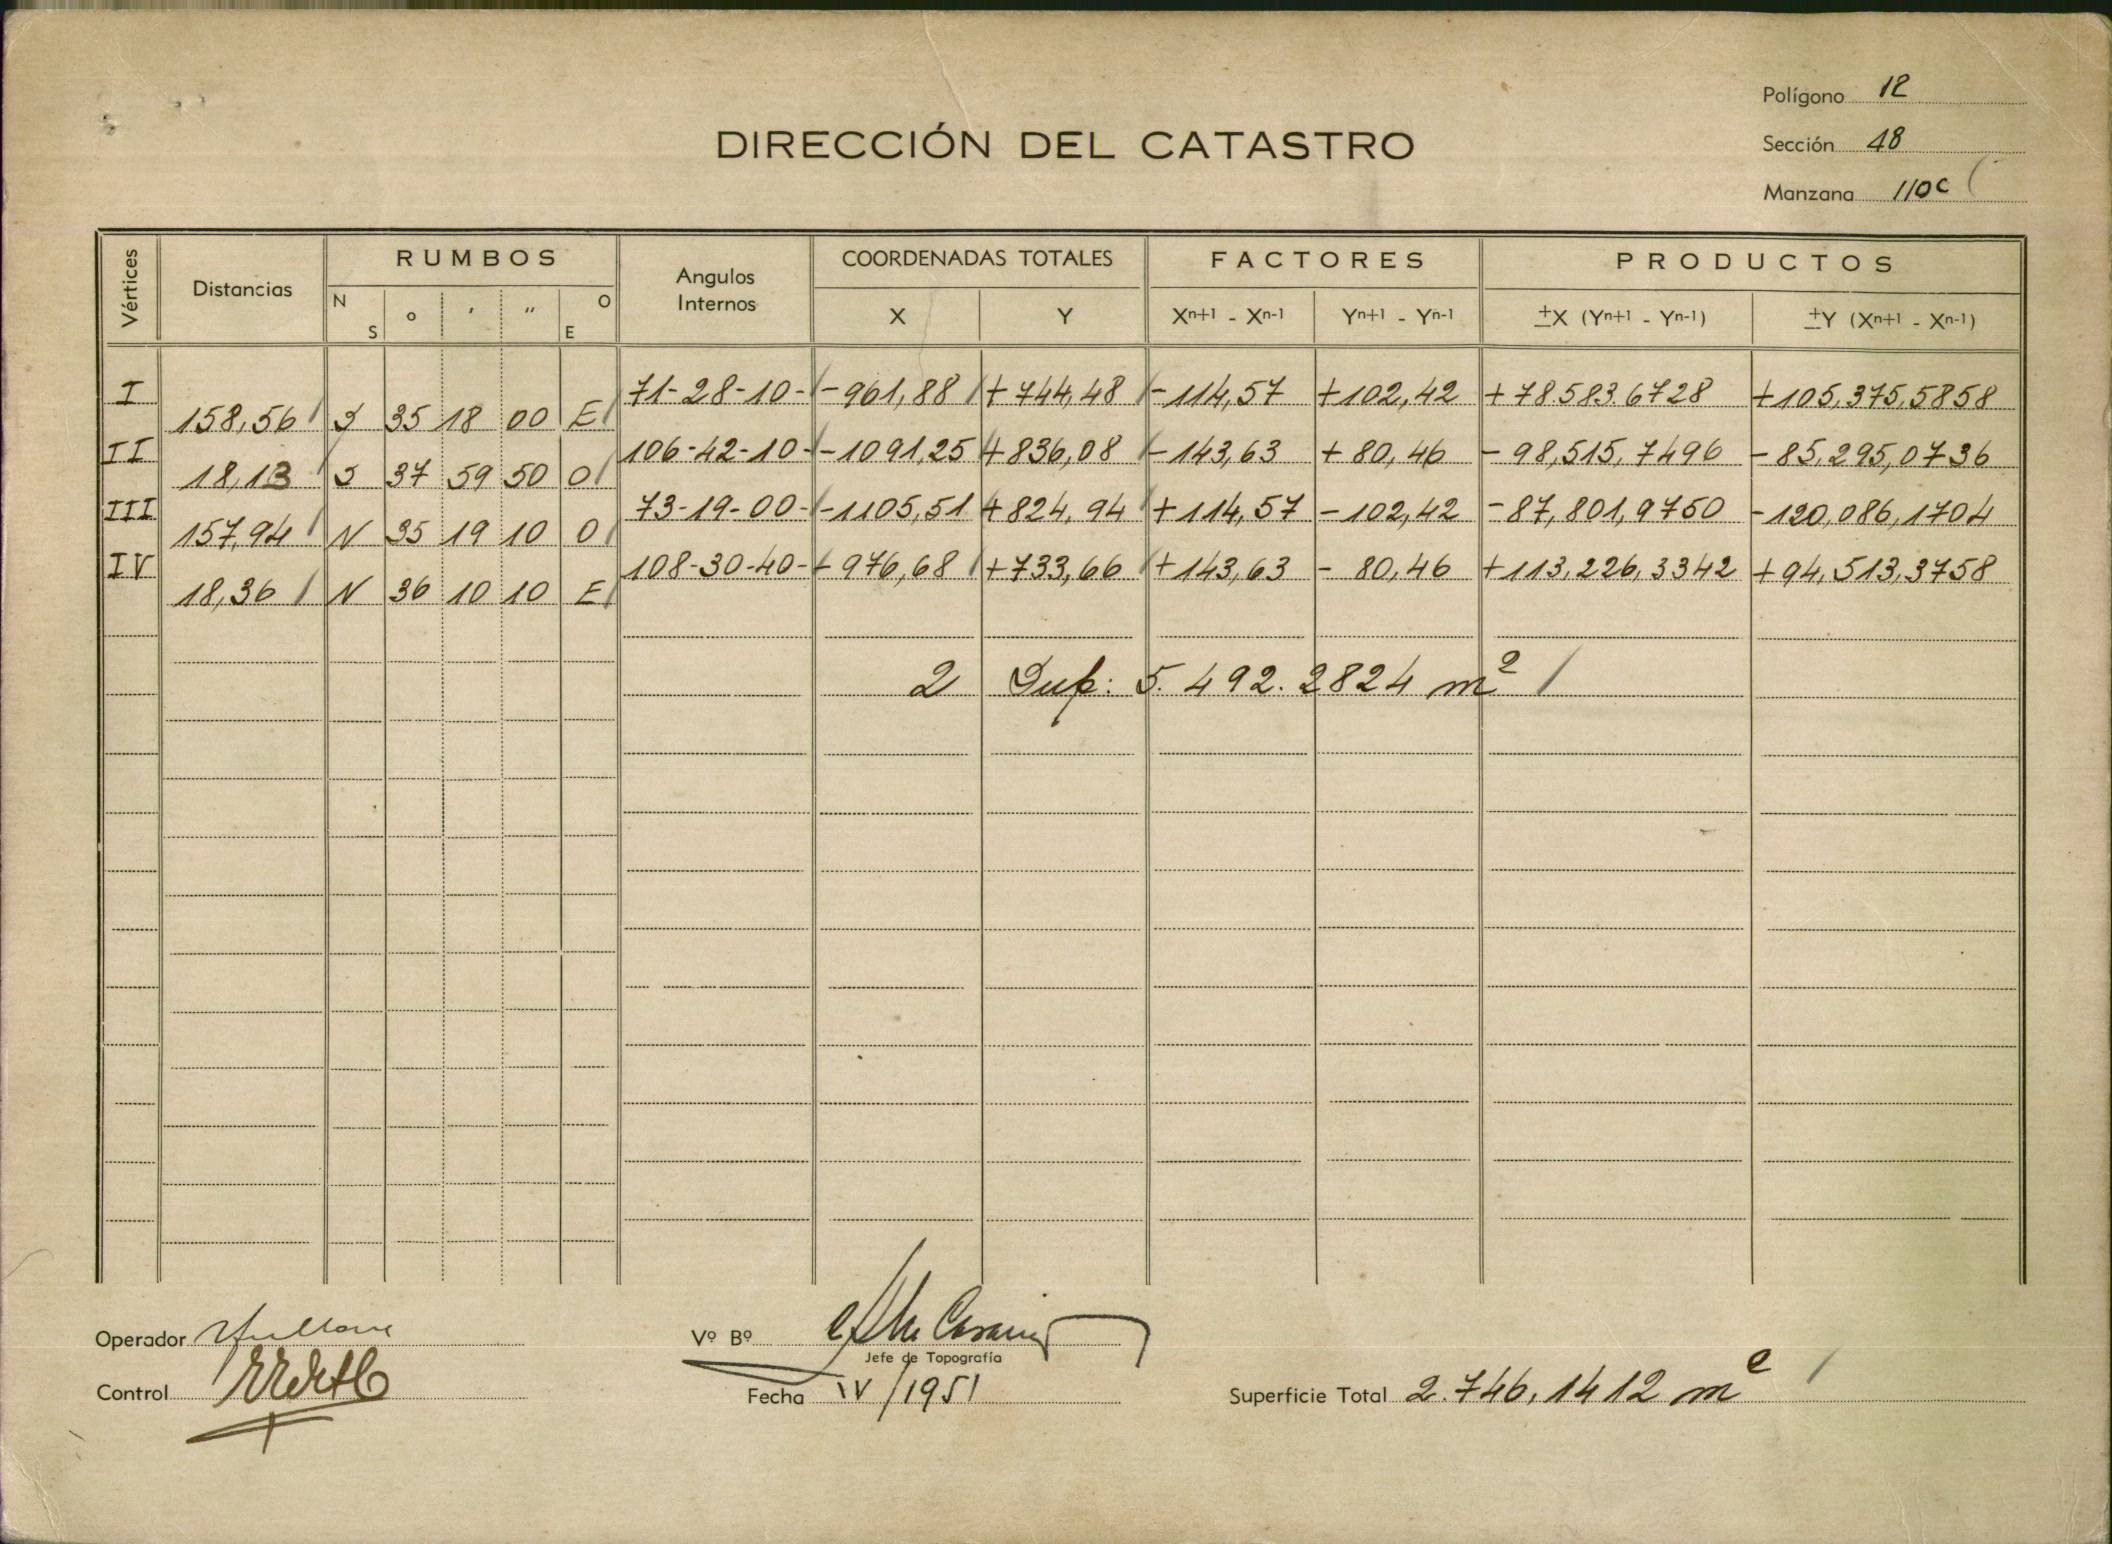 Polígono 12
DIRECCIÓN DEL CATASTRO
Sección 48
Manzana 110c
Vértices Distancias RUMBOS Angulos Internos COORDENADAS TOTALES FACTORES PRODUCTOS
N S ° ' " O E X Y Xn+1 - Xn-1 Yn+1 - Yn-1 ±X (Yn+1 - Yn-1) ±Y (Xn+1 - Xn-1)
I 71-28-10- -961,88 +744,48 -114,57 +102,42 +78.583.6728 +105,375,5858
158,56 S 35 18 00 E
II 106-42-10- -1091,25 +836,08 -143,63 +80,46 -98,515,7496 -85,295,0736
18,13 S 37 59 50 O
III 73-19-00- -1105,51 +824,94 +114,57 -102,42 -87,801,9750 -120,086,1704
157,94 N 35 19 10 O
IV 108-30-40- -976,68 +733,66 +143,63 -80,46 +113,226,3342 +94,513,3758
18,36 N 36 10 10 E
2 Sup: 5.492.2824 m²
Operador
Vº Bº
Jefe de Topografía
Control
Fecha IV/1951
Superficie Total 2.746,1412 m²